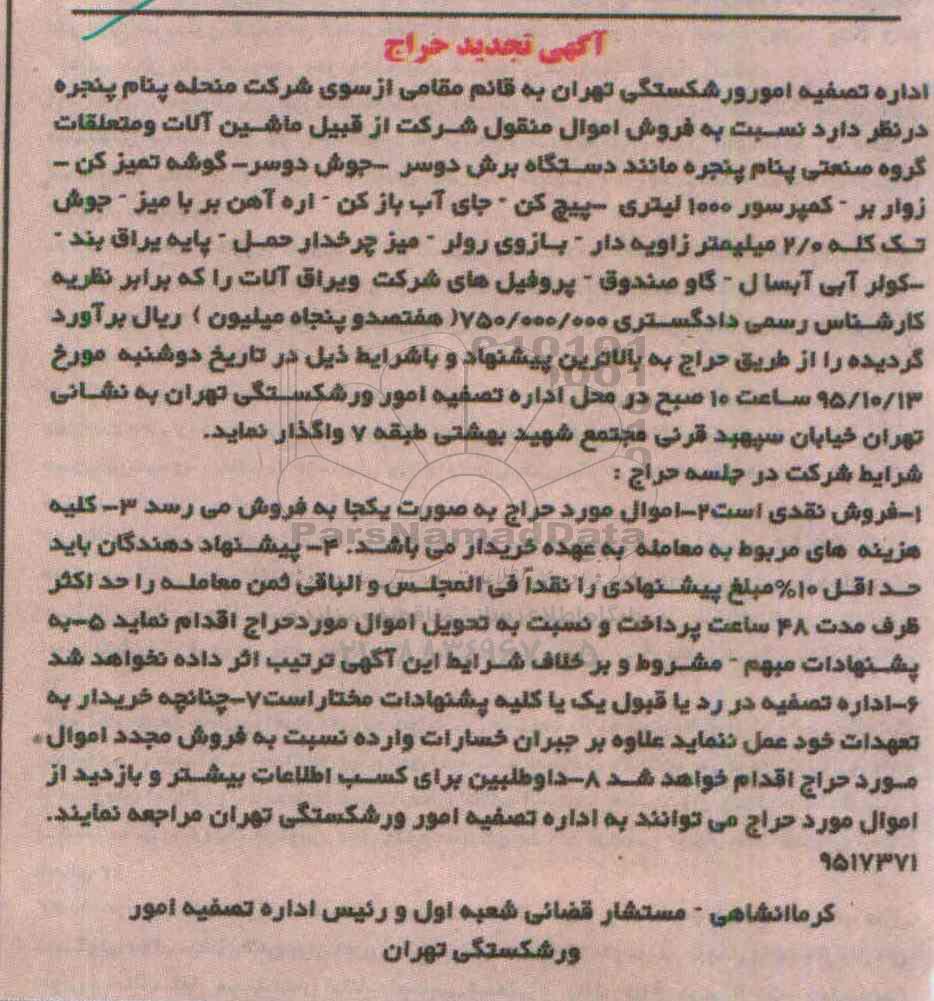 آگهی تجدید حراج
اداره تصفیه امورورشکستگی تهران به قائم مقامی ازسوی شرکت منحله پنام پنجره
درنظر دارد نسبت به فروش اموال منقول شرکت از قبیل ماشین آلات ومتعلقات
گروه صنعتی پنام پنجره مانند دستگاه برش دوسر -جوش دوسر- گوشه تمیز کن -
زوار بر - کمپرسور ۱۰۰۰ لیتری -پیچ کن - جای آب باز کن - اره آهن بر با میز - جوش
تک کله ۲/۰ میلیمتر زاویه دار - بازوی رولر - میز چرخدار حمل - پایه یراق بند -
-کولر آبی آبسا ل - گاو صندوق - پروفیل های شرکت ویراق آلات را که برابر نظریه
کارشناس رسمی دادگستری ۷۵۰/۰۰۰/۰۰۰( هفتصدو پنجاه میلیون ) ریال برآورد
گردیده را از طریق حراج به بالاترین پیشنهاد و باشرایط ذیل در تاریخ دوشنبه مورخ
۹۵/۱۰/۱۳ ساعت ۱۰ صبح در محل اداره تصفیه امور ورشکستگی تهران به نشانی
تهران خیابان سپهبد قرنی مجتمع شهید بهشتی طبقه ۷ واگذار نماید.
شرایط شرکت در جلسه حراج :
۱-فروش نقدی است۲-اموال مورد حراج به صورت یکجا به فروش می رسد ۳- کلیه
ParsNamadData
هزینه های مربوط به معامله به عهده خریدار می باشد. ۴- پیشنهاد دهندگان باید
حد اقل ۱۰%مبلغ پیشنهادی را نقداً فی المجلس و الباقی ثمن معامله را حد اکثر
ظرف مدت ۴۸ ساعت پرداخت و نسبت به تحویل اموال موردحراج اقدام نماید ۵-به
پشنهادات مبهم - مشروط و بر خلاف شرایط این آگهی ترتیب اثر داده نخواهد شد
۶-اداره تصفیه در رد یا قبول یک یا کلیه پشنهادات مختاراست۷-چنانچه خریدار به
تعهدات خود عمل ننماید علاوه بر جبران خسارات وارده نسبت به فروش مجدد اموال
مورد حراج اقدام خواهد شد ۸-داوطلبین برای کسب اطلاعات بیشتر و بازدید از
اموال مورد حراج می توانند به اداره تصفیه امور ورشکستگی تهران مراجعه نمایند.
۹۵۱۷۳۷۱
کرماانشاهی - مستشار قضائی شعبه اول و رئیس اداره تصفیه امور
ورشکستگی تهران